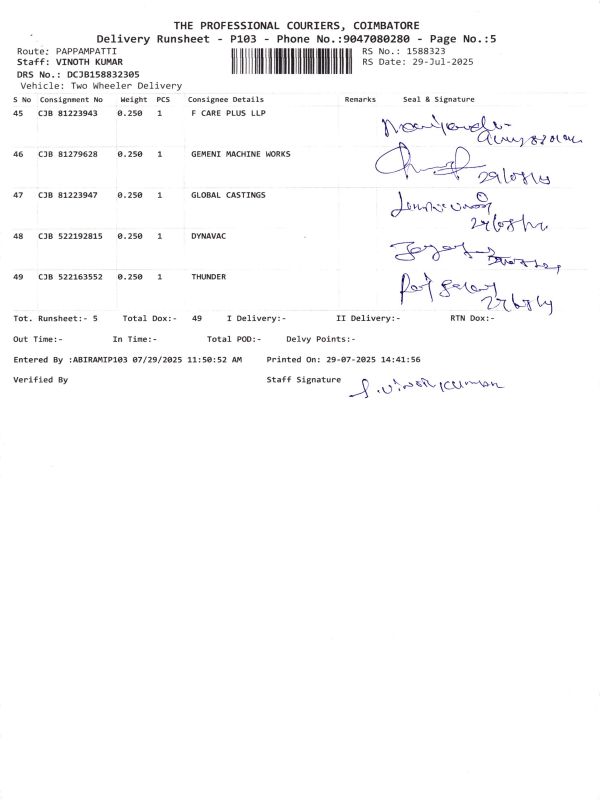 THE PROFESSIONAL COURIERS, COIMBATORE
Delivery Runsheet - P103 - Phone No.:9047080280 - Page No.:5
Route: PAPPAMPATTI RS No.: 1588323
Staff: VINOTH KUMAR RS Date: 29-Jul-2025
DRS No.: DCJB158832305
Vehicle: Two Wheeler Delivery
S No Consignment No Weight PCS Consignee Details Remarks Seal & Signature
45 CJB 81223943 0.250 1 F CARE PLUS LLP
46 CJB 81279628 0.250 1 GEMENI MACHINE WORKS
47 CJB 81223947 0.250 1 GLOBAL CASTINGS
48 CJB 522192815 0.250 1 DYNAVAC
49 CJB 522163552 0.250 1 THUNDER
Tot. Runsheet:- 5 Total Dox:- 49 I Delivery:- II Delivery:- RTN Dox:-
Out Time:- In Time:- Total POD:- Delvy Points:-
Entered By :ABIRAMIP103 07/29/2025 11:50:52 AM Printed On: 29-07-2025 14:41:56
Verified By Staff Signature